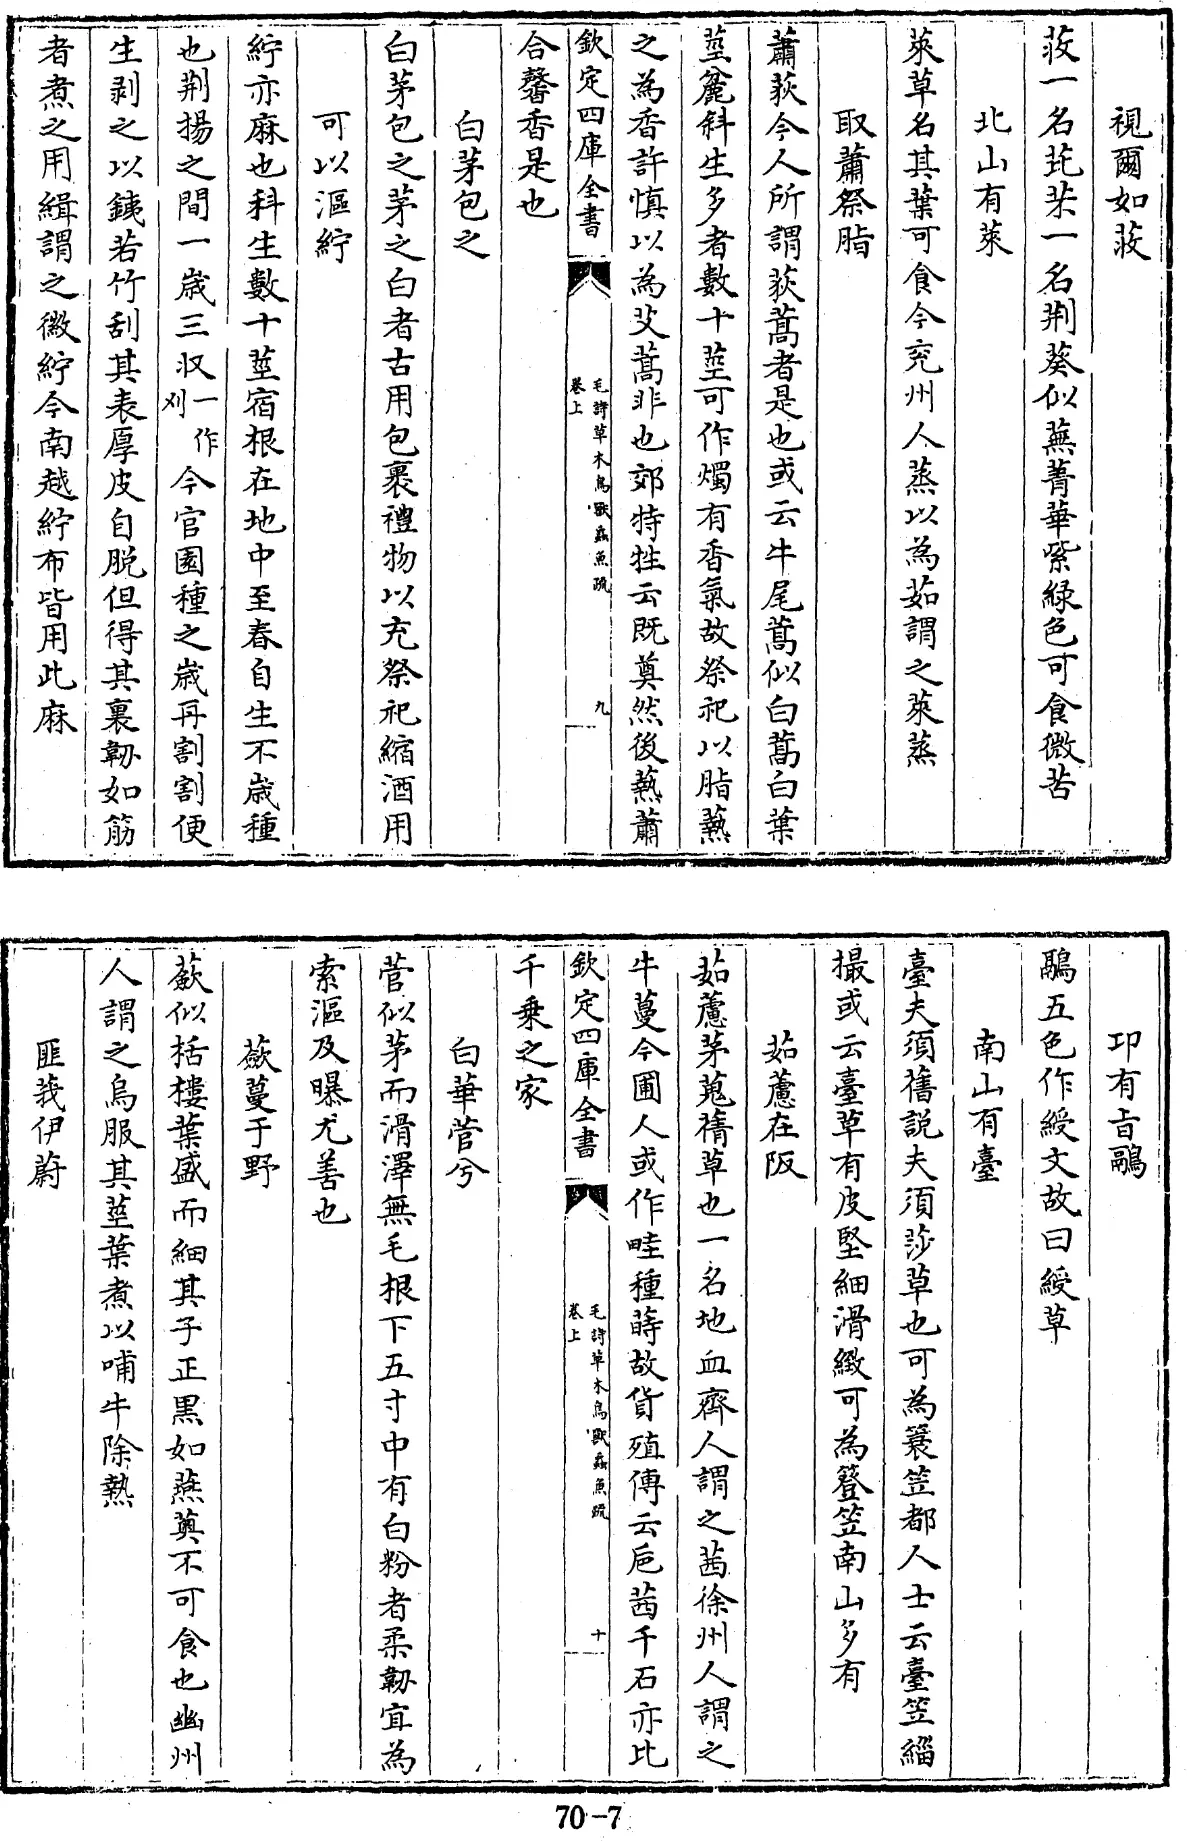 視爾如荍
荍一名芘芣一名荆葵似蕪菁華紫緑色可食微苦
北山有萊
萊草名其葉可食今兖州人蒸以為茹謂之萊蒸
取蕭祭脂
蕭荻今人所謂荻蒿者是也或云牛尾蒿似白蒿白葉
莖麄斜生多者數十莖可作燭有香氣故祭祀以脂爇
之為香許慎以為艾蒿非也郊特牲云既奠然後爇蕭
欽定四庫全書
毛詩草木鳥獸蟲魚疏
卷上
九
合馨香是也
白茅包之
白茅包之茅之白者古用包裹禮物以充祭祀縮酒用
可以漚紵
紵亦麻也科生數十莖宿根在地中至春自生不歲種
也荆揚之間一歲三収一作刈今官園種之歲再割割便
生剥之以鐵若竹刮其表厚皮自脱但得其裏韌如筋
者煮之用緝謂之徽紵今南越紵布皆用此麻
卭有旨鷊
鷊五色作綬文故曰綬草
南山有臺
臺夫須舊説夫須莎草也可為簑笠都人士云臺笠緇
撮或云臺草有皮堅細滑緻可為簦笠南山多有
茹藘在阪
茹藘茅蒐蒨草也一名地血齊人謂之茜徐州人謂之
牛蔓今圃人或作畦種蒔故貨殖傳云巵茜千石亦比
欽定四庫全書
毛詩草木鳥獸蟲魚疏
卷上
十
千乗之家
白華菅兮
菅似茅而滑澤無毛根下五寸中有白粉者柔韌宜為
索漚及曝尤善也
蘞蔓于野
蘞似栝樓葉盛而細其子正黒如燕薁不可食也幽州
人謂之烏服其莖葉煮以哺牛除熱
匪莪伊蔚
70-7